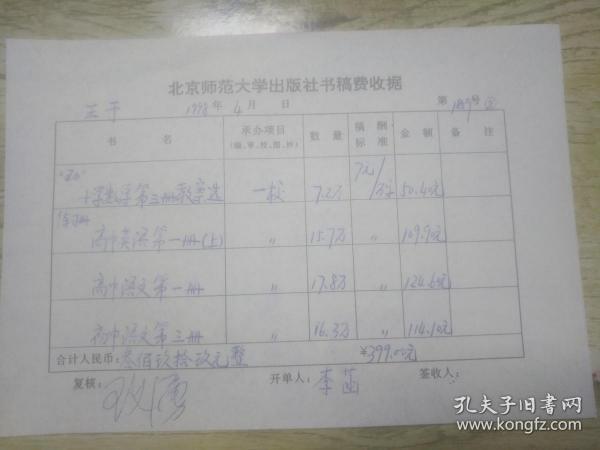 北京师范大学出版社书稿费收据
王于 1998年4月 日 第 号②
书 名 承办项目 (编、审、校、图、抄) 数量 稿酬标准 金额 备注
小学数学第三册教案选 一校 7.2万 7元/万字 50.40元
高中英语第一册(上) 〃 15.7万 〃 109.90元
高中语文第一册 〃 17.8万 〃 124.60元
高中语文第三册 〃 16.3万 〃 114.10元
合计人民币:叁佰玖拾玖元整 ¥399.00元
复核: 开单人:李茁 签收人:
孔夫子旧书网
www.kongfz.com